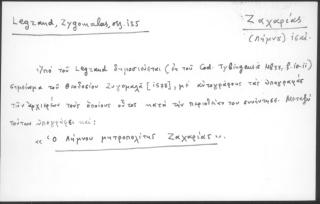 Legrand, Zygomalas, σελ. 125
Ζαχαρίας
(Λήμνου)
Ὑπὸ τοῦ Legrand δημοσιεύεται (ἐκ τοῦ Cod. Tybingensis Mb37, f. 10-11)
σημείωμα τοῦ Θεοδοσίου Ζυγομαλᾶ [1578], μὲ αὐτογράφους τὰς ὑπογραφὰς
τῶν ἀρχιερέων τοὺς ὁποίους οὗτος κατὰ τὴν περιοδείαν του συνήντησε. Μεταξὺ
τούτων ὑπογράφει καί:
« Ὁ Λήμνου μητροπολίτης Ζαχαρίας ».